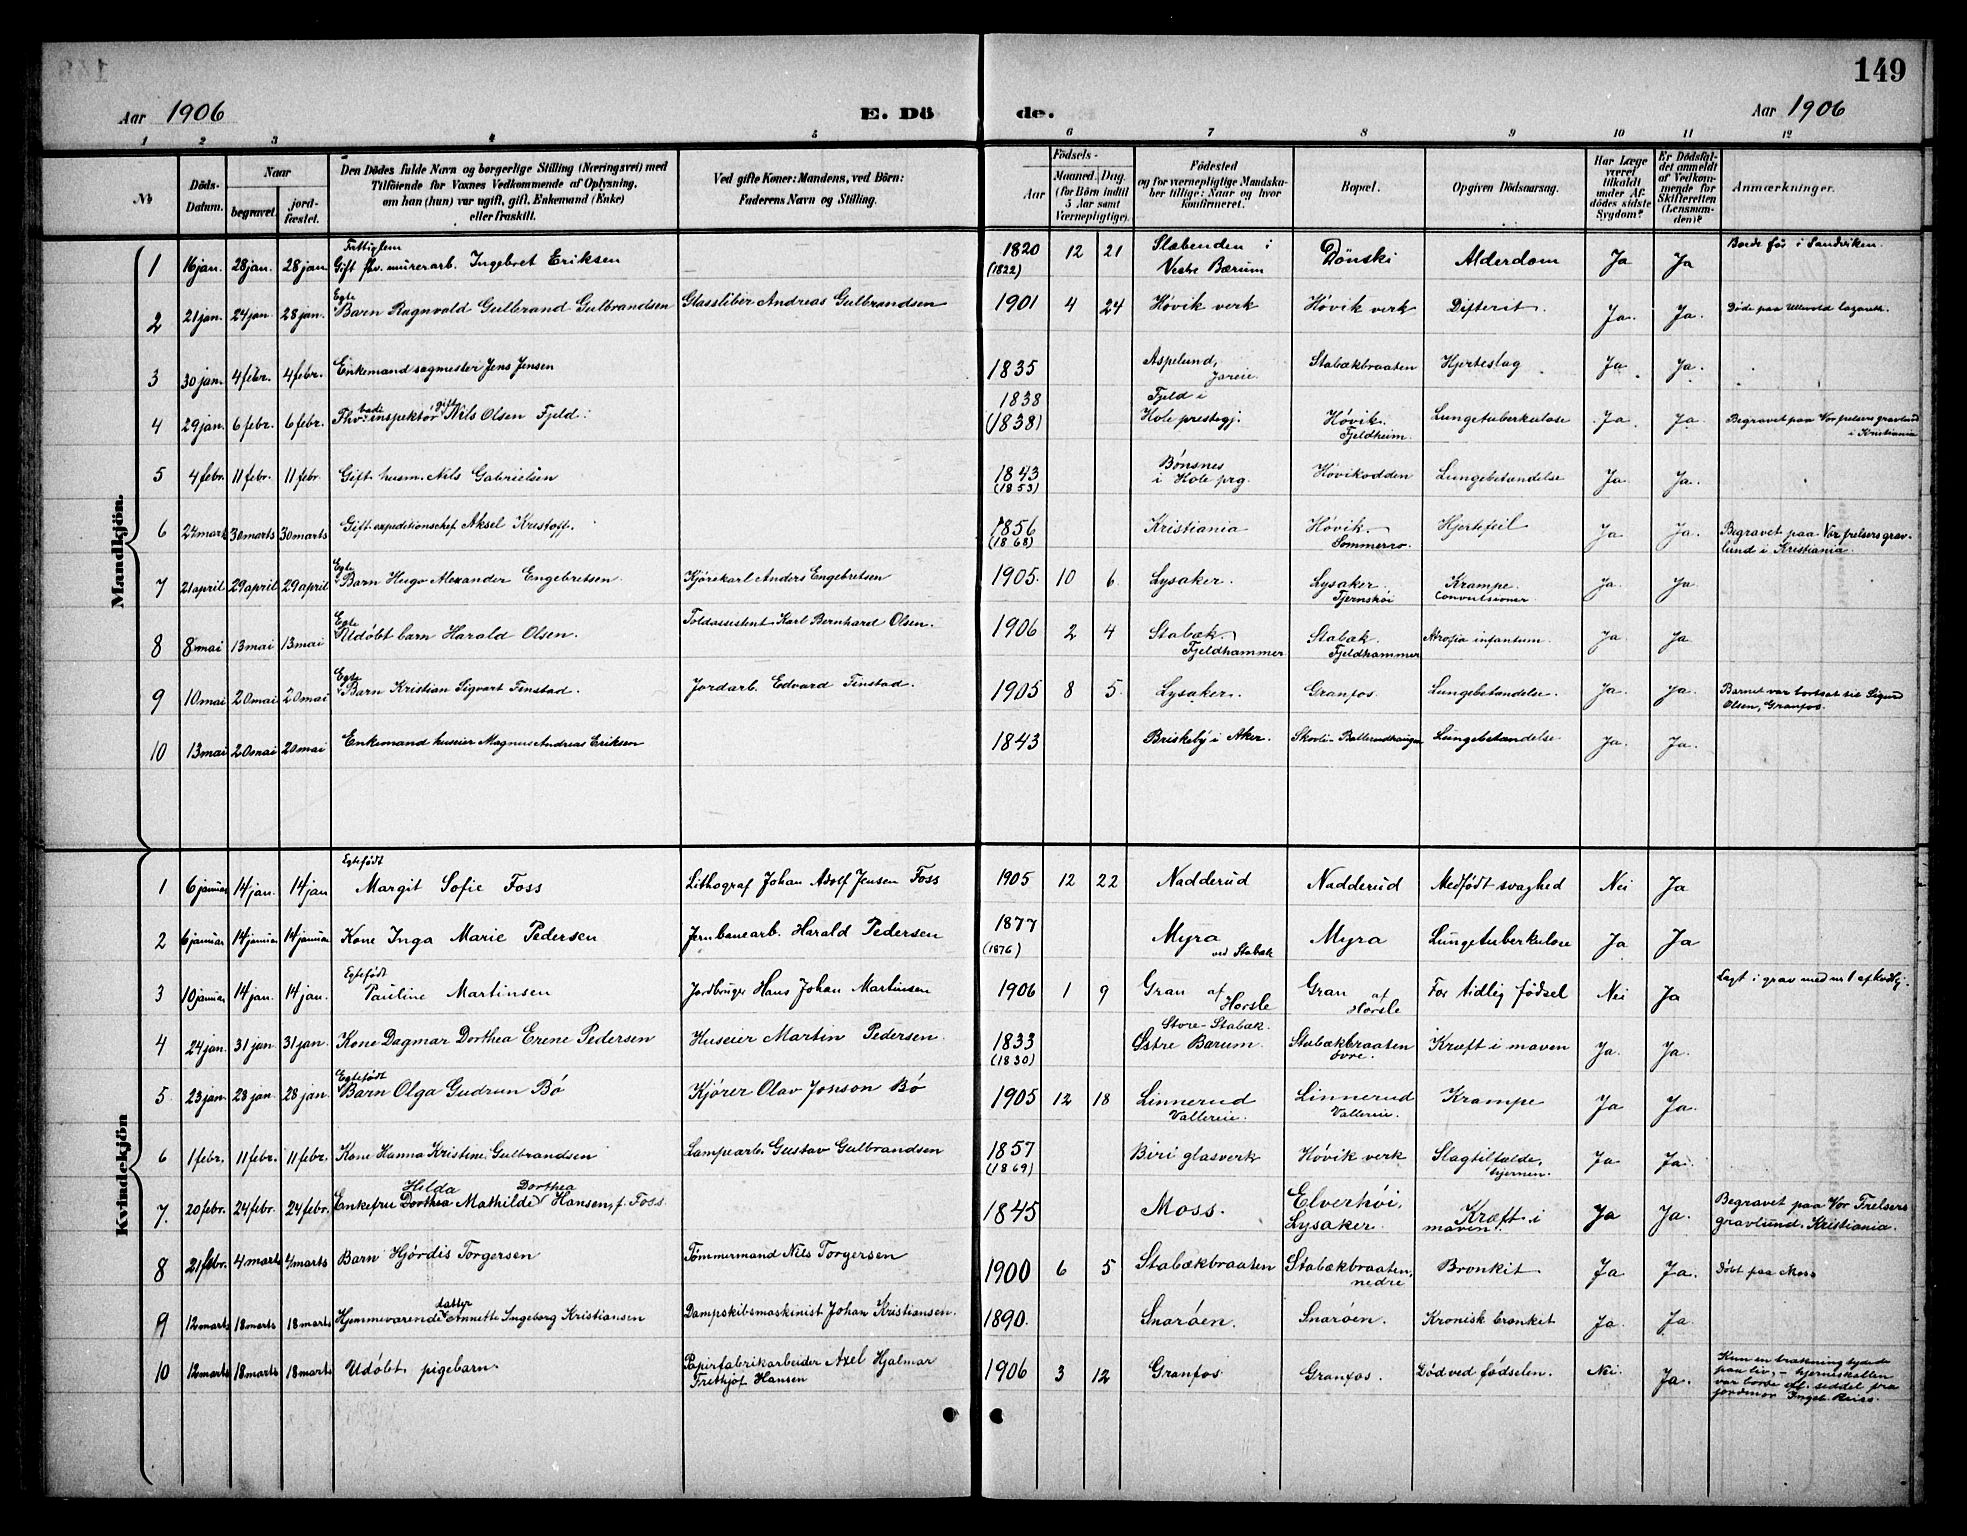 149
Aar 1906 E. Dö
de. Aar 1906
1 2 3 4 5 6 7 8 9 10 11 12
№ Döds-Datum. Naar begravet. jordfæstet. Den Dödes fulde Navn og borgerlige Stilling (Næringsvei) med Tilföiende for Voxnes Vedkommende af Oplysning, om han (hun) var ugift, gift, Enkemand (Enke) eller fraskilt. Ved gifte Koner: Mandens, ved Börn: Faderens Navn og Stilling. Födsels- Aar Maaned. Dag. (for Börn indtil 5 Aar samt Værnepligtige). Födested og for værnepligtige Mandskaber tillige: Naar og hvor konfirmeret. Bopæl. Opgiven Dödsaarsag. Har Læge været tilkaldt under Afdödes sidste Sygdom? Er Dödsfaldet anmeldt af Vedkommende for Skifteretten (Lensmanden)? Anmærkninger.
Mandkjön.
1 16 jan. 28 jan. 28 jan. Fattiglem Gift fhv. murerarb. Ingebret Eriksen 1820 (1822) 12 21 Slæbenden i Vestre Bærum Dönski Alderdom Ja Ja Boede før i Sandviken.
2 21 jan. 24 jan 28 jan. Egte Barn Ragnvald Gulbrand Gulbrandsen Glassliber Andreas Gulbrandsen 1901 4 24 Høvik verk Høvik verk Difterit. Ja. Ja. Døde paa Ullevold lazareth.
3 30 jan. 4 febr. 4 febr. Enkemand sagmester Jens Jensen 1835 Aspelund, Jareie. Stabækbraaten Hjerteslag Ja Ja.
4 29 jan. 6 febr. 6 febr. Fhv. badeinspektør gift Nils Olsen Fjeld. 1838 (1838) Fjeld i Hole prestegj. Høvik. Fjeldheim. Lungetuberkulose Ja. Ja. Begravet paa Vor frelsers gravlund i Kristiania
5 4 febr. 11 febr. 11 febr. Gift husm. Nils Gabrielsen 1843 (1853) Bønsnes i Hole prg. Høvikodden Lungebetændelse Ja Ja.
6 24 mars 30 marts 30 marts Gift expeditionschef Aksel Kristoff. 1856 (1868) Kristiania Høvik. Sommerro. Hjertefeil Ja Ja. Begravet paa Vor frelsers gravlund i Kristiania.
7 21 april 29 april 29 april Egte Barn Hugo Alexander Engebretsen. Kjørekarl Anders Engebretsen 1905. 10 6 Lysaker. Lysaker. Fjernskoi Krampe. Convulsioner Ja. Ja
8 8 mai 13 mai 13 mai Egte Udøbt barn Harald Olsen. Toldassistent Karl Bernhard Olsen. 1906 2 4 Stabæk. Fjeldhammer Stabæk. Fjeldhammer Atrofia infantum. Ja Ja
9 10 mai 20 mai 20 mai Egte Barn Kristian Sigvart Finstad. Jordarb. Edvard Finstad. 1905 8 5. Lysaker. Granfos. Lungebetændelse. Ja. Ja. Barnet var bortsat til Sigurd Olsen, Granfos.
10 13 mai 20 mai 20 mai Enkemand huseier Magnus Andreas Eriksen 1843 Briskeby i Aker. Skovli- Ballerudhaugen Lungebetændelse. Ja. Ja.
Kvindekjön
1 6 januar 14 jan. 14 jan Egtefødt Margit Sofie Foss Lithograf Johan Adolf Jensen Foss 1905 12 22 Nadderud Nadderud Medfødt svaghed Nei Ja
2 6 januar 14 januar 14 januar Kone Inga Marie Pedersen Jernbanearb. Harald Pedersen 1877 (1876) Myra ved Stabæk Myra Lungetuberkulose Ja Ja
3 10 januar 14 jan. 14 jan. Egtefødt Pauline Martinsen Jordbruger Hans Johan Martinsen 1906 1 9 Gran af Horsle Gran af Horsle For tidlig fødsel Nei Ja Lagt i grav med nr 1 af kvdkj.
4 24 jan. 31 jan 31 jan. Kone Dagmar Dorthea Erene Pedersen Huseier Martin Pedersen. 1833 (1830) Store-Stabæk. Østre Bærum. Stabækbraaten øvre. Kræft i maven Ja. Ja.
5. 23 jan. 28 jan. 28 jan. Egtefødt Barn Olga Gudrun Bø Kjører Olav Jonson Bø 1905 12 18 Linnerud Vallereie. Linnerud Vallereie. Krampe Ja Ja.
6 1 febr. 11 febr. 11 febr. Kone Hanna Kristine Gulbrandsen Lampearb. Gustav Gulbrandsen 1857 (1869) Biri glasverk Høvik verk Slagtilfælde, hjernen. Ja Ja.
7. 20 febr. 24 febr. 24 febr. Enkefru Hilda Dorthea Mathilde Dorthea Hansen, f. Foss. 1845 Moss. Elverhøi, Lysaker. Kræft i maven. Ja Ja. Begravet paa Vor Frelsers gravlund. Kristiania.
8 21 febr. 4 marts 4 marts Barn Hjørdis Torgersen Tømmermand Nils Torgersen 1900 6 5 Stabækbraaten Stabækbraaten, nedre Bronkit Ja Ja. Døbt paa Moss
9 12 marts 18 marts 18 marts Hjemmeværende datter Annette Ingeborg Kristiansen Dampskibsmaskinist Johan Kristiansen. 1890. Snarøen. Snarøen. Kronisk bronkit Ja. Ja.
10 12 marts 18 marts 18 marts Udøbt pigebarn. Papirfabrikarbeider Axel Hjalmar Frithjof Hansen 1906 3 12 Granfos Granfos. Død ved fødselen. Nei. Ja. Kun en trækning tydede paa liv, - hjerneskallen var borte ifl. seddel fra jordmor Ingeb. Reiss.